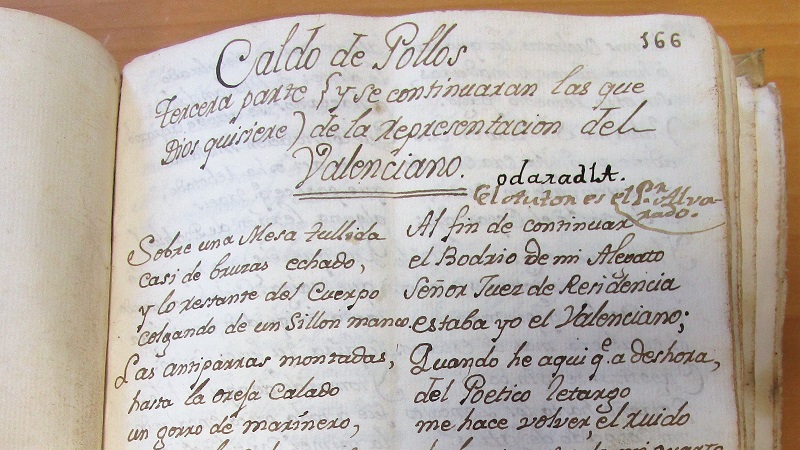 166
Caldo de Pollos
tercera parte (y se continuaran las que
Dios quisiere) de la representacion del
Valenciano.
odaradlA.
El Autor es el Pn. Alva-
rado.
Sobre una Mesa tullida
casi de bruzas echado,
y lo restante del Cuerpo
colgando de un Sillon manco.
Las antiparras montadas,
hasta la oreja Calado
un gorro de marinero,
Al fin de continuar
el Bodrio de mi Alegato
Señor Juez de Residencia
estaba yo el Valenciano;
Quando he aqui q.e a deshora,
del Poetico letargo
me hace volver, el ruido